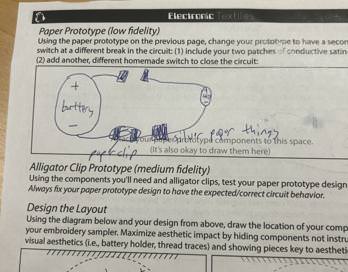 Electronic Textiles
Paper Prototype (low fidelity)
Using the paper prototype on the previous page, change your prototype to have a secon
switch at a different break in the circuit: (1) include your two patches of conductive satin
(2) add another, different homemade switch to close the circuit:
+
battery
−
paper things
your paper prototype components to this space.
paperclip
(It's also okay to draw them here)
Alligator Clip Prototype (medium fidelity)
Using the components you'll need and alligator clips, test your paper prototype design
Always fix your paper prototype design to have the expected/correct circuit behavior.
Design the Layout
Using the diagram below and your design from above, draw the location of your comp
your embroidery sampler. Maximize aesthetic impact by hiding components not instru
visual aesthetics (i.e., battery holder, thread traces) and showing pieces key to aestheti